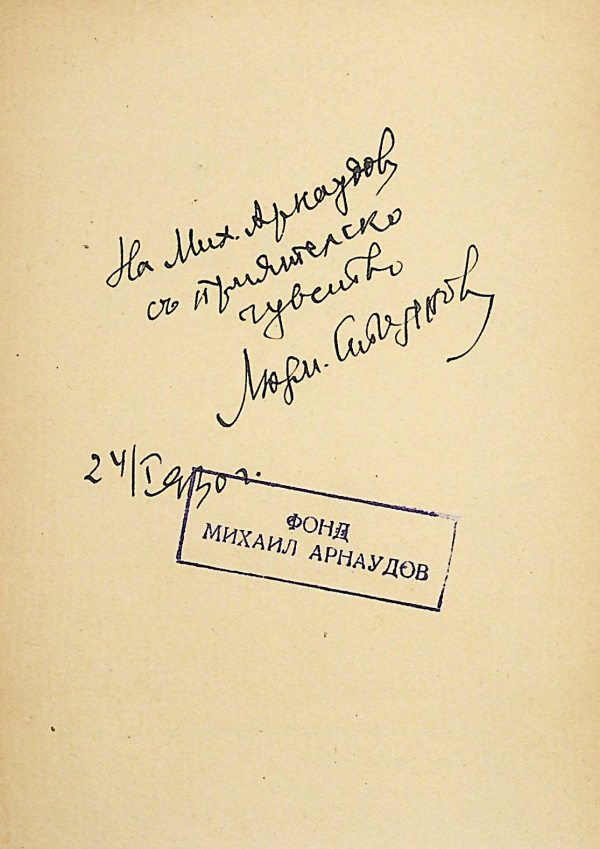 На Мих. Арнаудов
съ приятелско
чувство
Людм. Стоянов
24/I
ФОНД
МИХАИЛ АРНАУДОВ